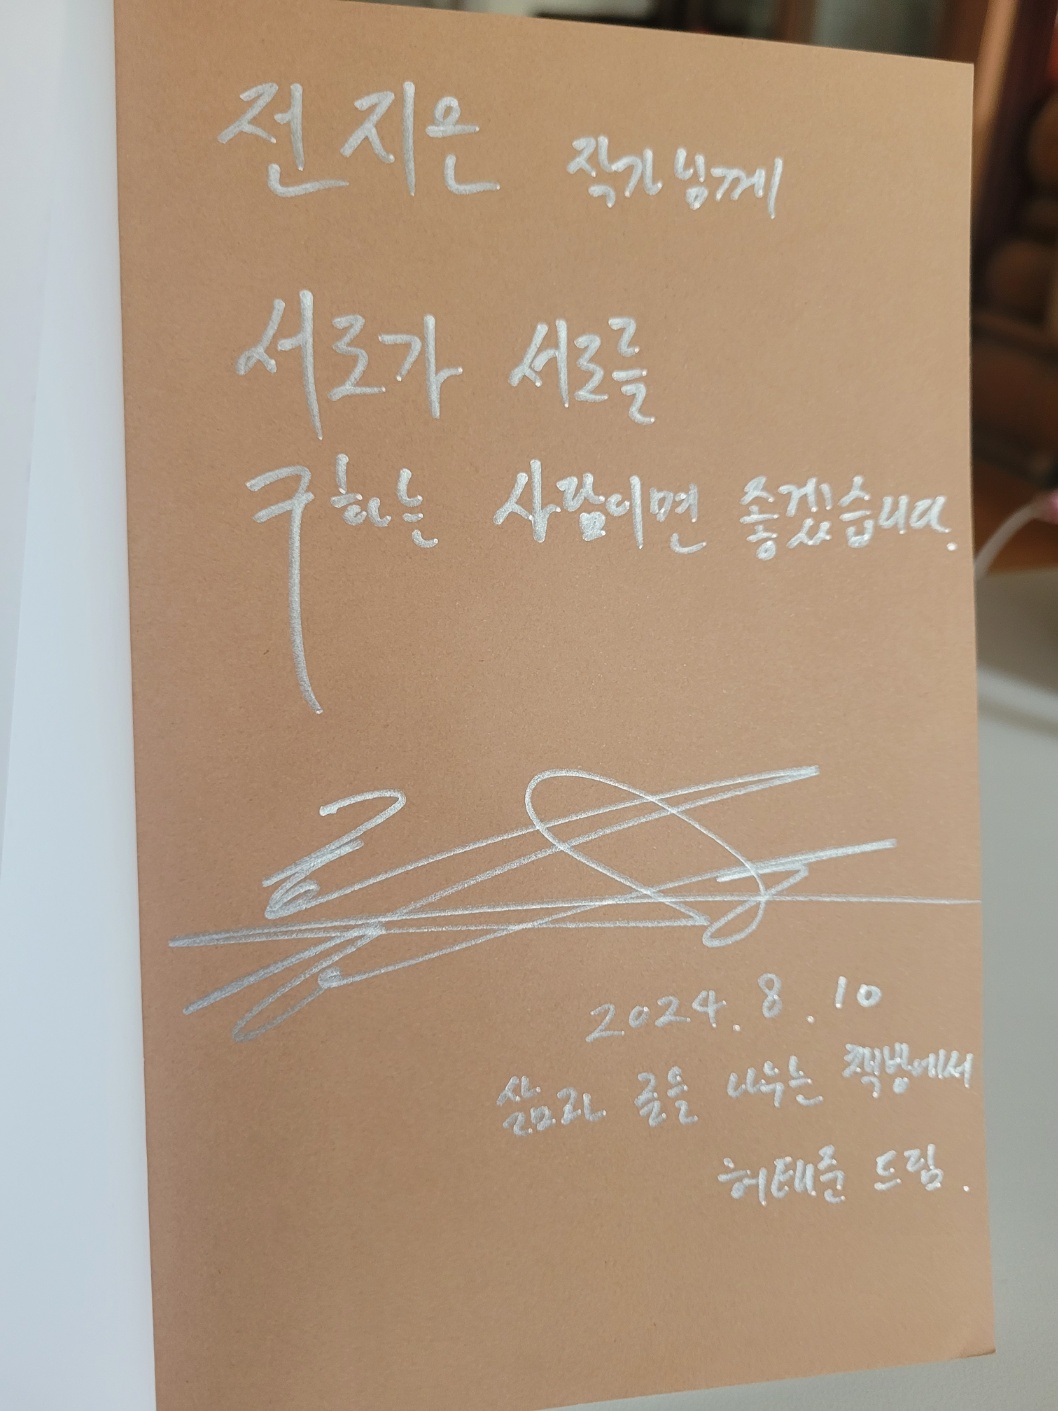 전지은 작가님께
서로가 서로를
구하는 사람이면 좋겠습니다.
2024. 8. 10
삶과 글을 나누는 책방에서
허태준 드림.